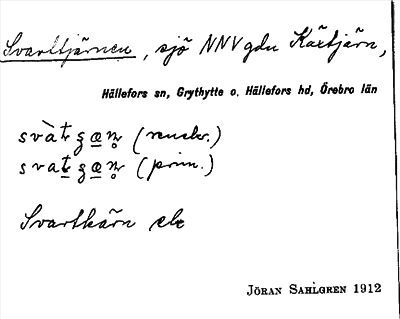 Svarttjärnen, sjö NNV gdn Käxtjärn,
Hällefors sn, Grythytte o. Hällefors hd, Örebro län
(renskr.)
(prim.)
Svartkärn ek
JÖRAN SAHLGREN 1912